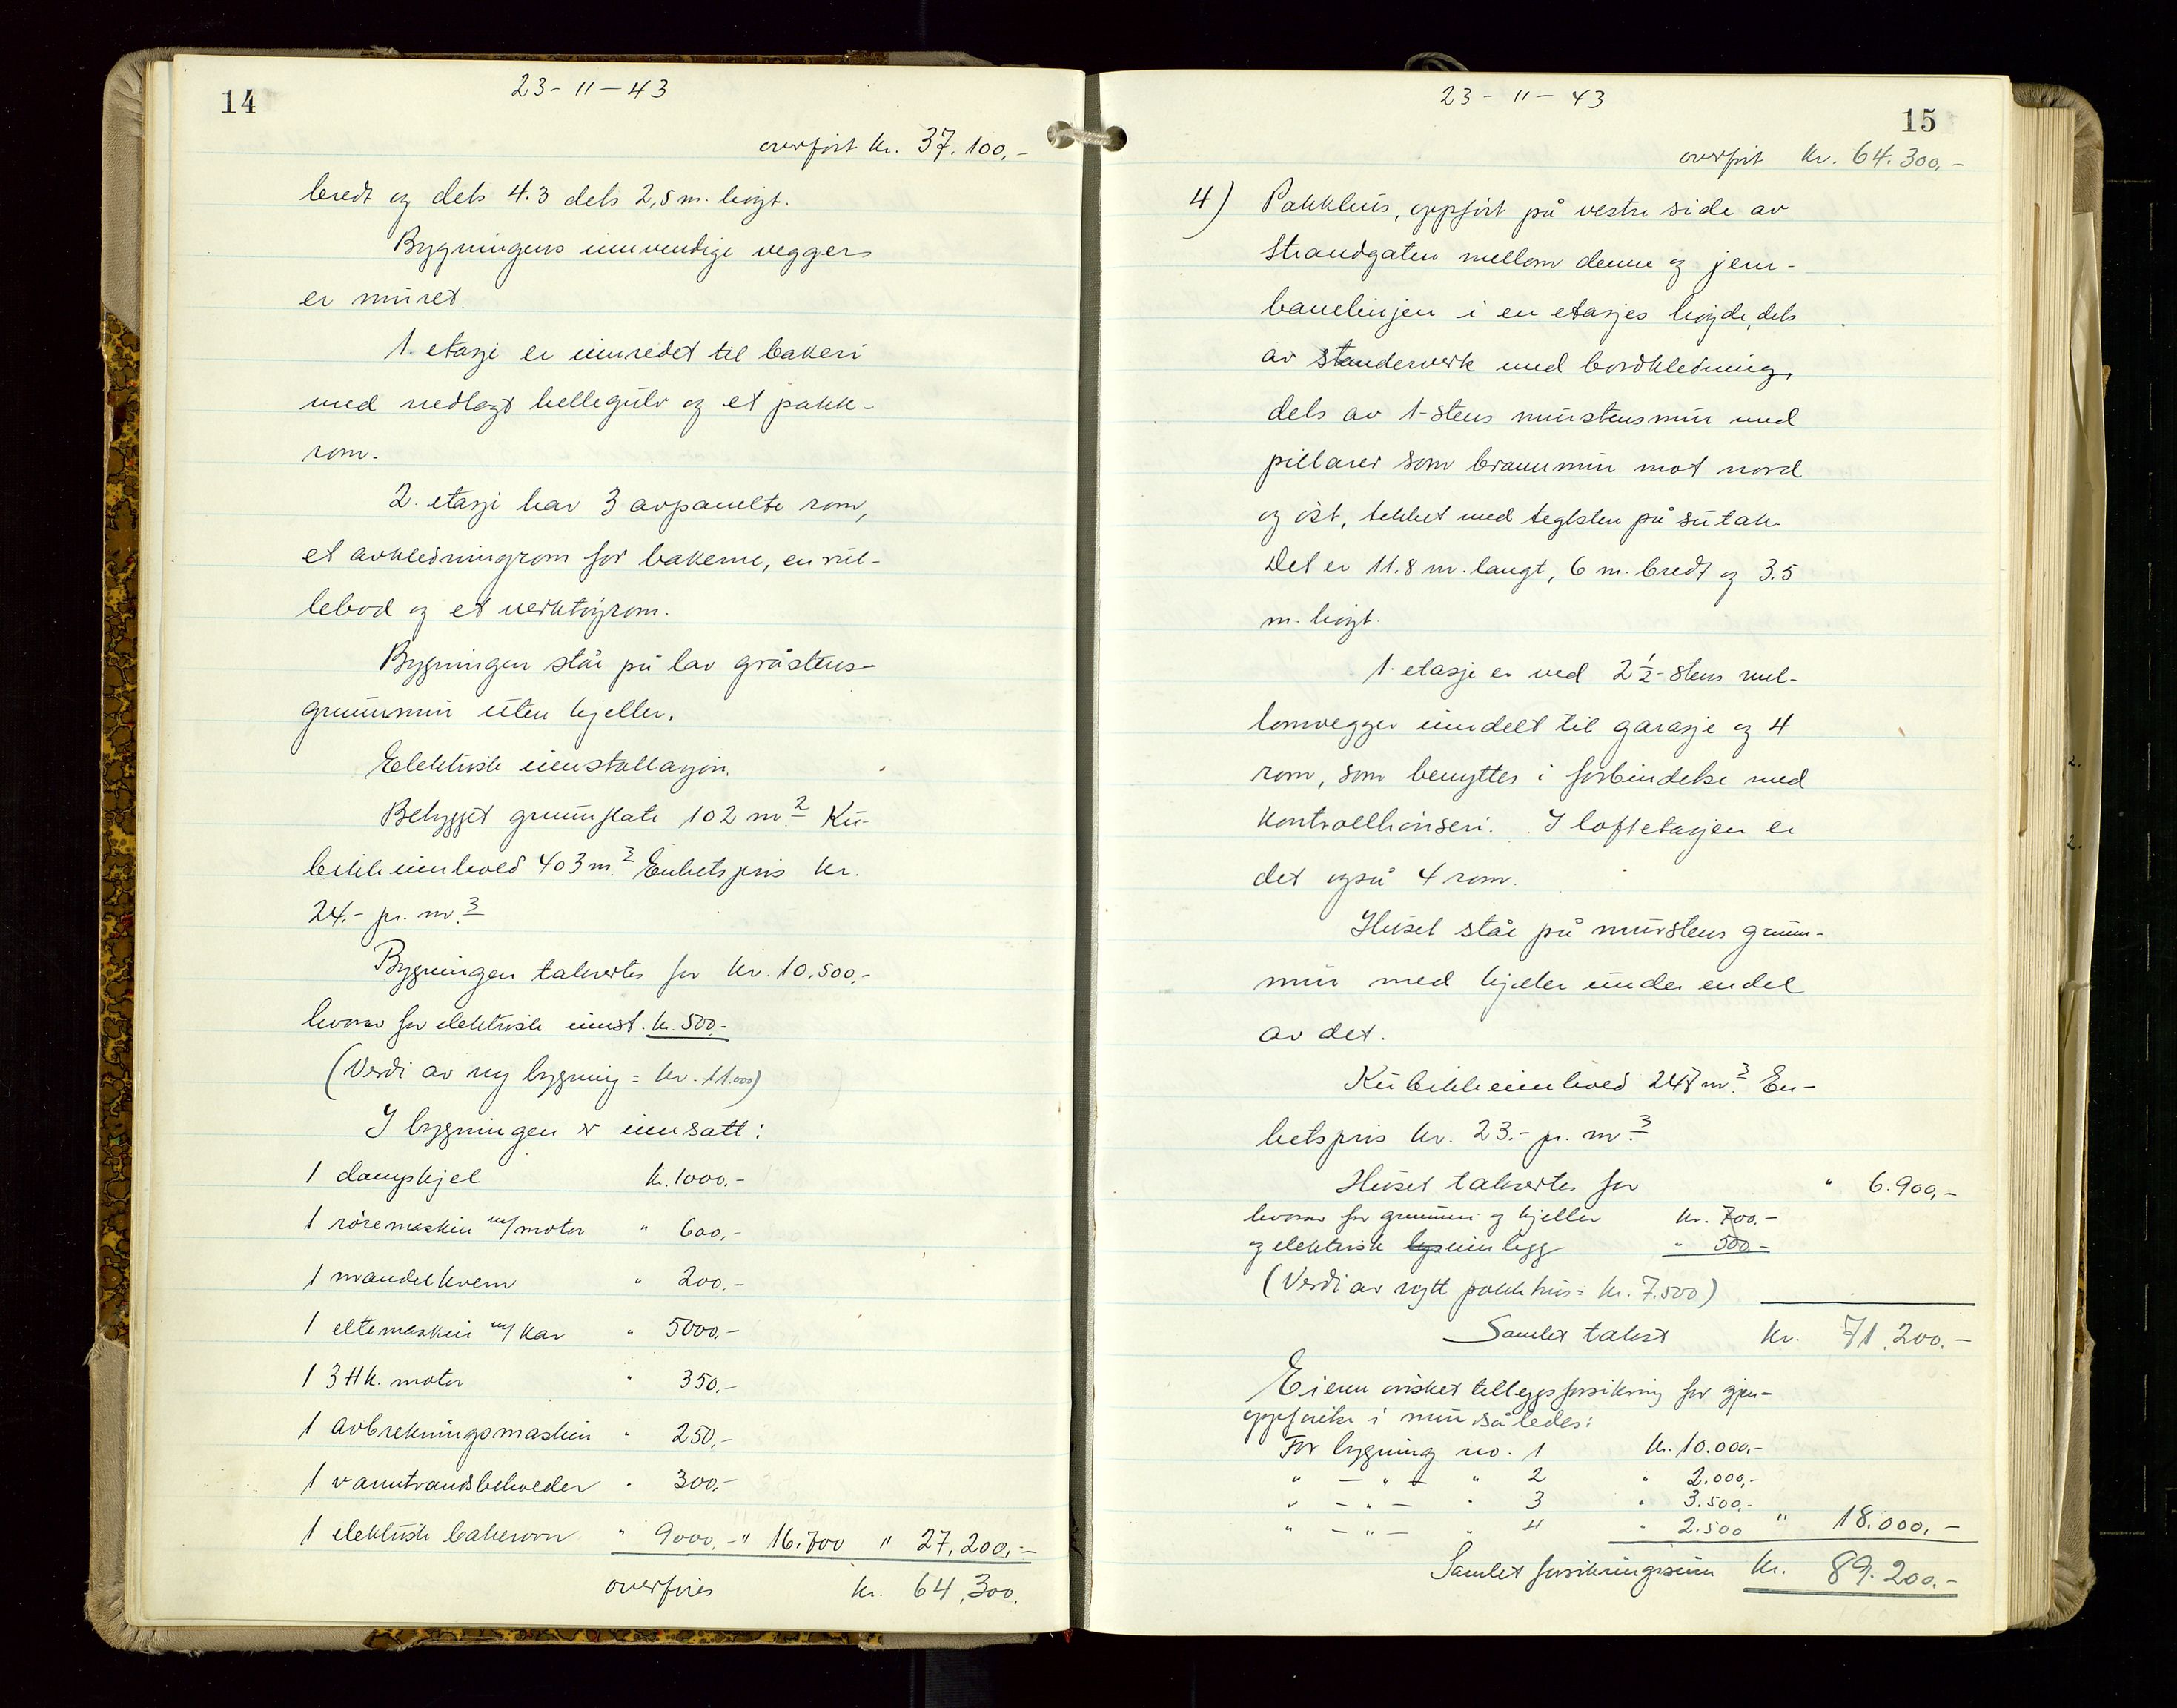 14
23-11-43
overført kr. 37.100,-
bredt og dels 4.3 dels 2,5 m. høyt.
Bygningens innvendige vegger
er muret.
1. etasje er innredet til bakeri
med nedlagt hellegulv og et pakk-
rom.
2. etasje har 3 avpanelte rom,
et avkledningrom for bakerne, en rul-
lebod og et verktøyrom.
Bygningen står på lav gråstens-
grunnmur uten kjeller.
Elektrisk innstallasjon.
Bebygget grunnflate 102 m.2 Ku-
bikkinnhold 403 m.3 Enhetspris kr.
24.- pr. m.3
Bygningen takseres for kr. 10.500,-
hvorav for elektrisk innst. kr. 500.-
(Verdi av ny bygning = kr. 11.000)
I bygningen er innsatt:
1 dampkjel kr. 1000.-
1 röremaskin m/motor " 600,-
1 mandelkvern " 200.-
1 eltemaskin m/ kar " 5000,-
1 3 Hk. motor " 350,-
1 avbrekningsmaskin " 250,-
1 vanntrandsbeholder " 300,-
1 elektrisk bakerovn " 9000.- " 16.700 " 27.200,-
overføres kr. 64.300.
23-11-43
15
overført kr. 64.300,-
4) Pakkhus, oppført på vestre side av
Strandgaten mellom denne og jern-
banelinjen i en etasjes høyde, dels
av stenderverk med bordkledning,
dels av 1-stens murstensmur med
pillarer som brannmur mot nord
og öst, tekket med teglsten på sutak.
Det er 11.8 m. langt, 6 m. bredt og 3.5
m. høyt.
1. etasje er ved 2 1/2-stens mel-
lomvegger inndelt til garasje og 4
rom, som benyttes i forbindelse med
kontrollhönseri. I loftetasjen er
det også 4 rom.
Huset står på murstens grunn-
mur med kjeller under endel
av det.
Kubikkinnhold 247 m.3 En-
hetspris kr. 23.- pr. m.3
Huset takseres for " 6.900,-
hvorav for grunnmur og kjeller kr. 700.-
og elektrisk innlegg " 500.-
(Verdi av nytt pakkhus = kr. 7.500)
Samlet takst kr. 71.200.-
Eieren önsker tilleggsforsikring for gjen-
oppførelse i mur således:
For bygning no. 1 kr. 10.000,-
" - " - " 2 " 2.000,-
" - " - " 3 " 3.500,-
" - " - " 4 " 2.500 " 18.000,-
Samlet forsikringssum kr. 89.200.-